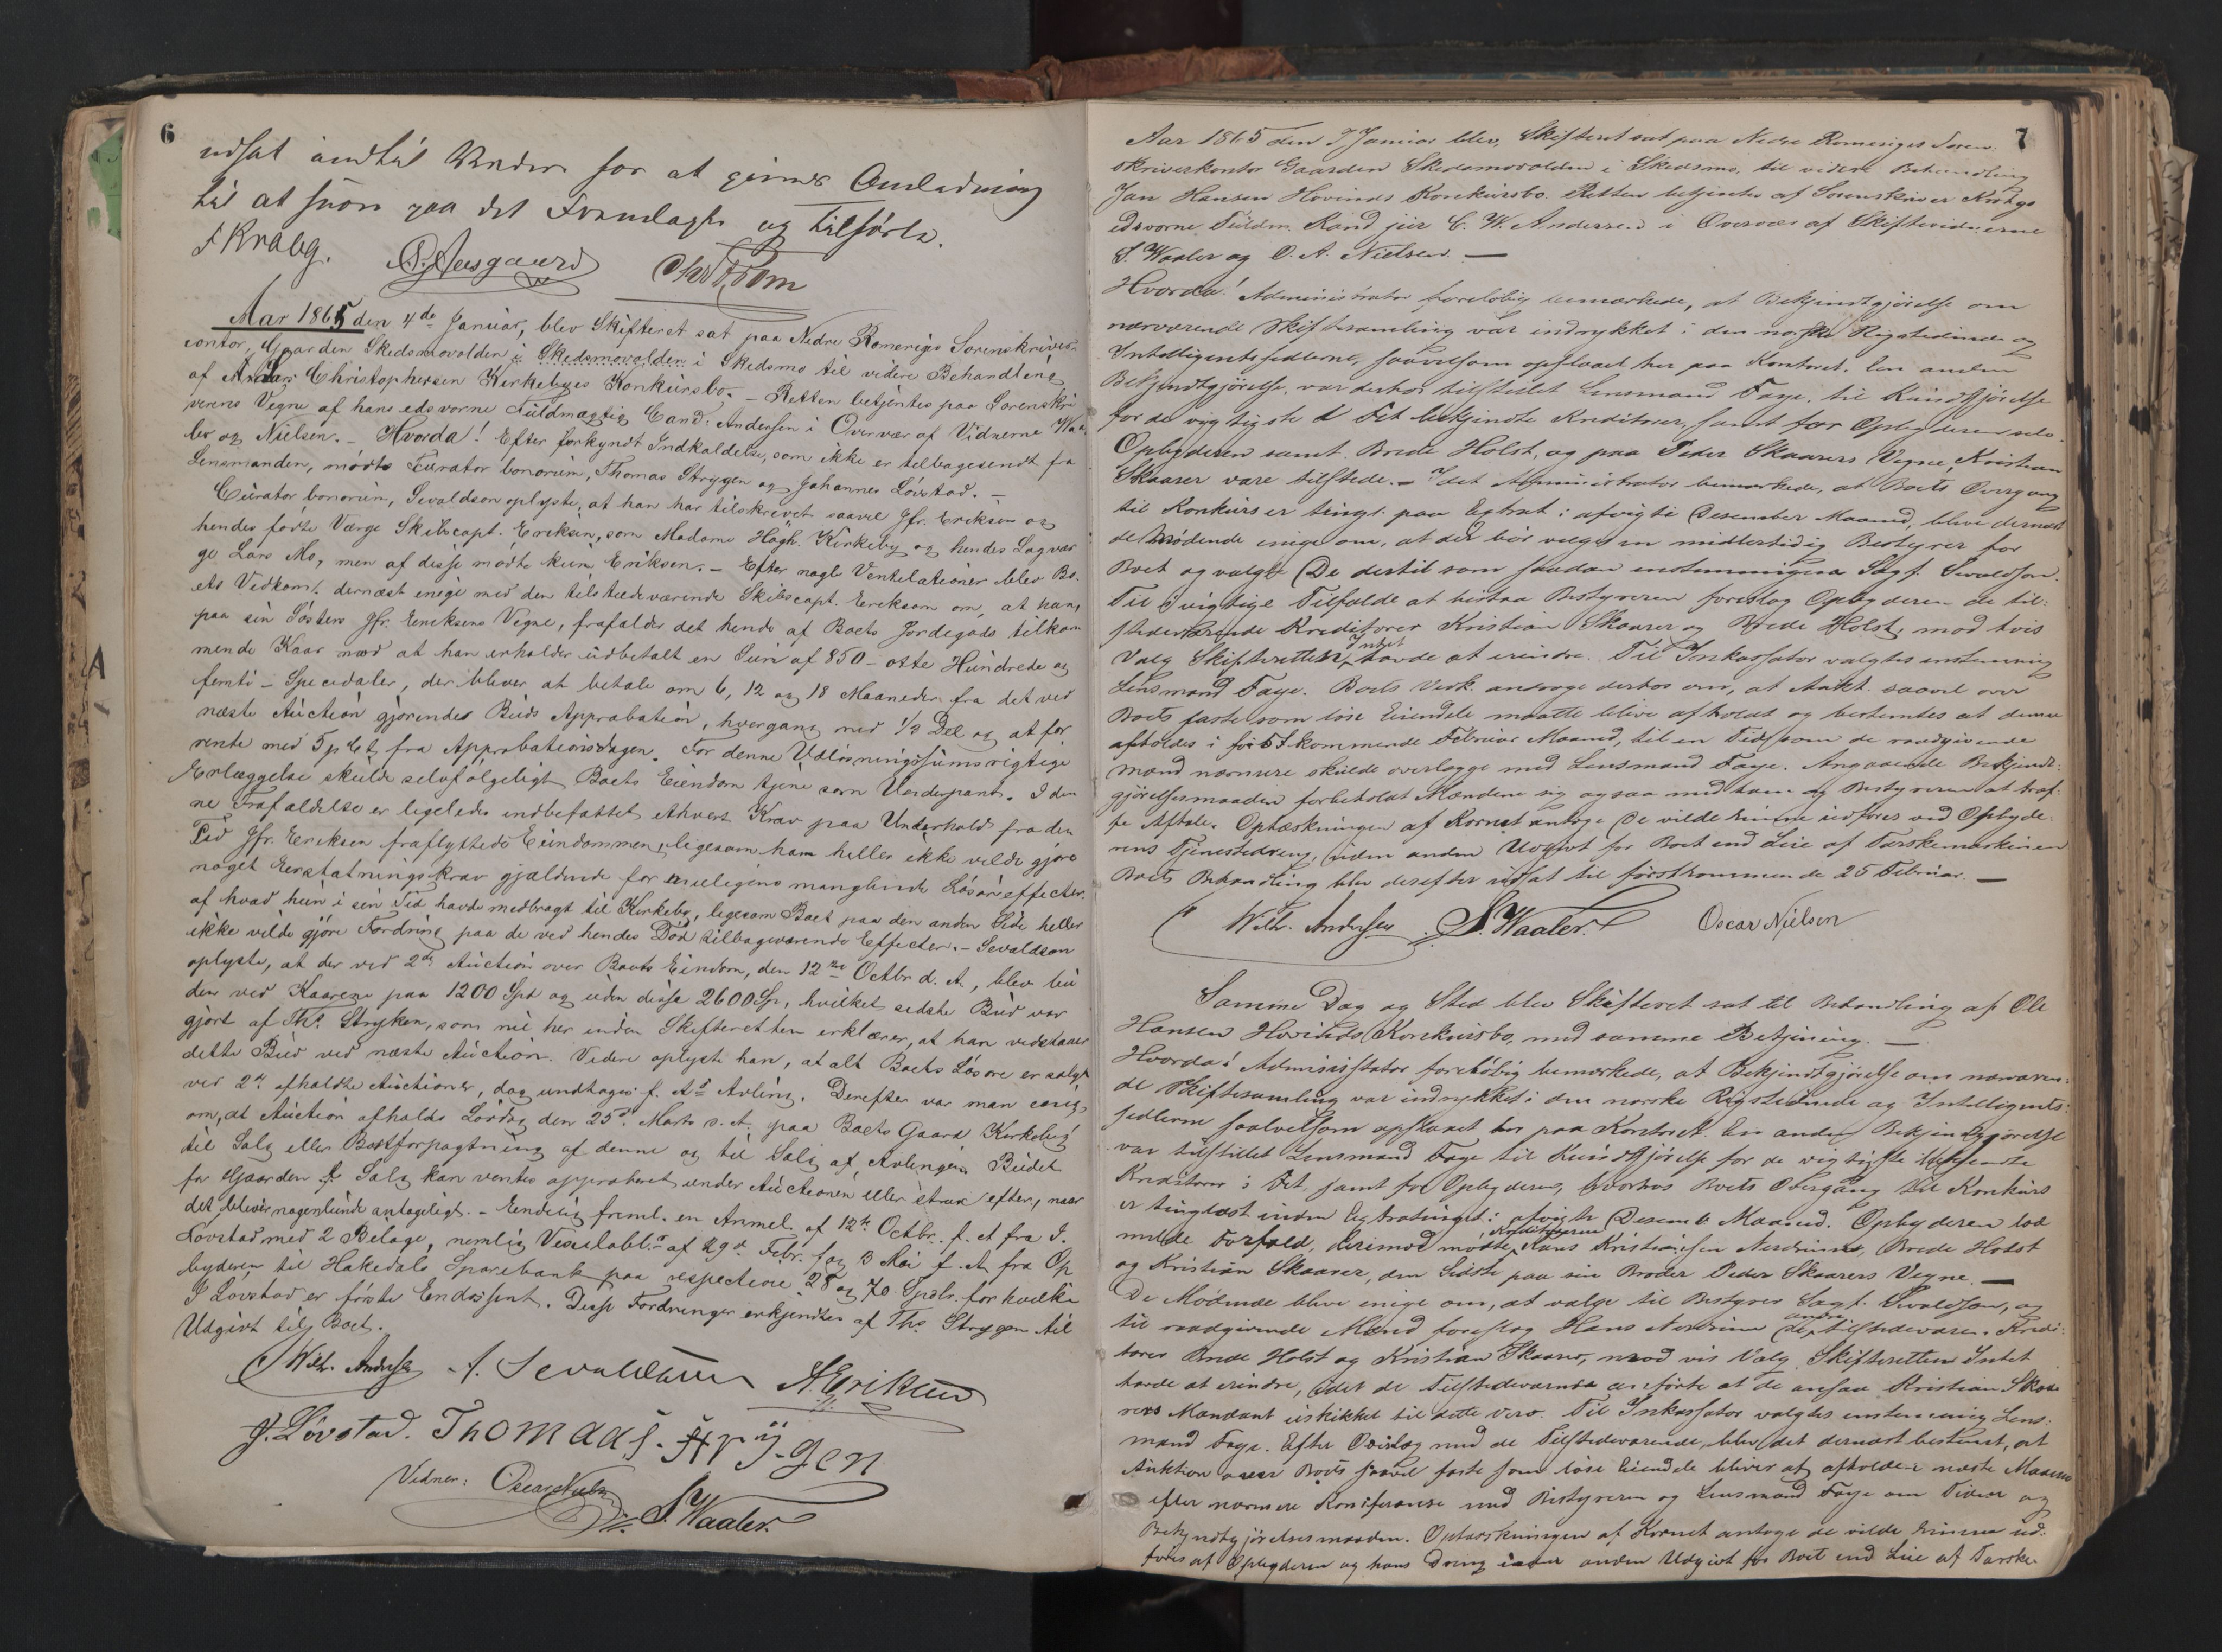 6
udsat indtil videre for at gives Anledning
til at svare paa det Fremlagte og Tilførte.
F Krabg. Aasgaard Chr Strøm
Aar 1865 den 4de Januar, blev Skifteret sat paa Nedre Romerigs Sorenskriver-
contor, Gaarden Skedsmovolden i Skedsmovolden i Skedsmo til videre Behandling
af Anders Christophersen Kirkebyes Konkursbo. – Retten betjentes paa Sorenskri
verens Vegne af hans edsvorne Fuldmægtig Cand: Andersen i Overvær af Vidnerne Waa
ler og Nielsen. – Hvorda! Efter forkyndt Indkaldelse, som ikke er tilbagesendt fra
Lensmanden, mødte Curator bonorum, Thomas Strygen og Johannes Løvstad. –
Curator bonorum, Sevaldson oplyste, at han har tilskrevet saavel Jfr. Eriksen og
hendes fødte Værge Skibscapt. Eriksen, som Madame Høgh. Kirkeby og hendes Lagvær
ge Lars Mo, men af disse mødte kun Eriksen. – Efter nogle Ventelationer blev Bo-
ets Vedkom. dernæst enige med den tilstedeværende Skibscapt. Eriksen om, at han,
paa sin Søsters Jfr. Eriksens Vegne, frafalder det hende af Boets Jordegods tilkom
mende Kaar mod at han erholder udbetalt en Sum af 850 – otte Hundrede og
femti – Speciedaler, der bliver at betale om 6, 12 og 18 Maaneder fra det ved
næste Auction gjørendes Buds Approbation, hvergang med 1/3 Del og at for
rente med 5 p Ct. fra Approbationsdagen. For denne Udløsningssums rigtige
Erlæggelse skulde selvfølgeligt Boets Eiendom tjene som Underpant. I den
ne Frafaldelse er ligeledes indbefattet ethvert Krav paa Underhold fra den
Tid Jfr. Eriksen fraflyttede Eiendommen, ligesom han heller ikke vilde gjøre
noget Erstatningskrav gjældende for muligens manglende Løsøreffecter,
af hvad hun i sin Tid havde medbragt til Kirkeby, ligesom Boet paa den anden Side heller
ikke vilde gjøre Fordring paa de ved hendes Død tilbageværende Effecter. – Sevaldson
oplyste, at der ved 2den Auction over Boets Eiendom, den 12te Octbr d. A., blev bu
den ved Kaarene paa 1200 Spd og uden disse 2600 Sp, hvilket sidste Bud var
gjort af Ths. Stryken, som nu her inden Skifteretten erklærer, at han vedstaaer
dette Bud ved næste Auction. Videre oplyste han, at alt Boets Løsøre er solgt
ved 2de afholdte Auctioner, dog undtages f. As Avling. Derefter var man enig
om, at Auction afholdes Lørdag den 25de Marts d. A. paa Boets Gaard Kirkeby
til Salg eller Bortforpagtning af denne og til Salg af Avlingen. Budet
for Gaarden f. Salg kan ventes approberet under Auctionen eller strax efter, naar
det bliver nogenlunde antageligt. – Endelig freml. en Anmel. af 12te Octbr. f. A. fra J.
Løvstad med 2 Bilage, nemlig Vexelobl. af 29de Febr. f. og 3 Mai f. A. fra Op
byderen til Hakedals Sparebank paa respective 28 og 70 Spdlr. for hvilke
J Løvstad er første Endossent. Disse Fordringer erkjendtes af Ths. Strygen til
Udgivt til Boet.
Wilh. Andersen A. Sevaldson A. Eriksen
J. Løvstad. Thomaas. Strÿgen
Vidner: Oscar Nielsen S. Waaler.
7
Aar 1865 den 7 Januar blev Skifteret sat paa Nedre Romeriges Soren-
skriverkontor Gaarden Skedsmovolden i Skedsmo, til videre Behandling
Jan Hansen Hovinds Konkursbo. Retten betjentes af Sorenskriver Krabgs
edsvorne Fuldm. Kand jur C. W. Andersen i Overvær af Skiftevidnerne
S. Waaler og O. A. Nielsen. —
Hvorda! Administrator foreløbig bemærkede, at Bekjendtgjørelse om
nærværende Skiftesamling var indrykket i den norske Rigstidende og
Intelligentssedlerne, saavelsom opslaaet her paa Kontoret. En anden
Bekjendtgjørelse var derhos tilstillet Lensmand Faye, til Kundgjørelse
for de vigtigste i Det bekjendte Kreditorer, samt for Opbyderen selv.
Opbyderen samt Brede Holst, og paa Peder Skaarers Vegne, Kristian
Skaarer vare tilstede. – Idet Administrator bemærkede, at Boets Overgang
til Konkurs er tinglæst paa Extrat i afvigte Desember Maaned, bleve dernæst
de Mødende enige om, at der bør vælges en midlertidig Bestyrer for
Boet og valgte De dertil som saadan enstemmigen Sagf. Sevaldson.
Til i vigtige Tilfælde at bistaa Bestyreren foreslog Opbyderen de til-
stedeværende Kreditorer Kristian Skaarer og Brede Holst, mod hvis
Valg Skifteretten Intet havde at erindre. Til Inkassator valgtes enstemmig
Lensmand Faye. Boets Vedk. androge derhos om, at Aukt. saavel over
Boets faste som løse Eiendele maatte blive afholdt og bestemtes at denne
afholdes i førstkommende Februar Maaned, til en Tid som de raadgivende
Mænd nærmere skulde overlægge med Lensmand Faye. Angaaende Bekjendt-
gjørelsesmaaden forbeholdt Mændene sig ogsaa med ham og Bestyreren at træf-
fe Aftale. Optærskningen af Kornet antoge De vilde kunne udføres ved Opbyde-
rens Tjenestedreng, uden anden Udgivt for Boet end Leie af Tærskemaskinen
Boets Behandling blev derefter udsat til førstkommende 25 Februar. —
Wilh. Andersen. S. Waaler. Oscar Nielsen
Samme Dag og Sted blev Skifteret sat til Behandling af Ole
Hansen Hovinds Konkursbo, med samme Betjening. —
Hvorda! Administrator foreløbig bemærkede, at Bekjendtgjørelse om nærværen-
de Skiftesamling var indrykket i den norske Rigstidende og Intelligents-
sedlerne saavelsom opslaaet her paa Kontoret. En anden Bekjendtgjørelse
var tilstillet Lensmand Faye til Kundgjørelse for de vigtigste bekjendte
Kreditorer i Det samt for Opbyderen, hvorhos Boets Overgang til Konkurs
er tinglæst inden Extratinget i afvigte Desemb. Maaned. Opbyderen lod
melde Forfald, derimod mødte Kreditorerne Hans Kristiansen Nordrum, Brede Holst
og Kristian Skaarer, den Sidste paa sin Broder Peder Skaarers Vegne. —
De Mødende bleve enige om, at vælge til Bestyrer Sagf. Sevaldson, og
til raadgivende Mænd foreslog Hans Nordrum de andre tilstedeværen. Kredi-
torer Brede Holst og Kristian Skaarer, mod vis Valg Skifteretten Intet
havde at erindre, idet de Tilstedeværende anførte at de ansaa Kristian Skaa
rers Mandant uskikket til dette Verv. Til Inkassator valgtes enstemmig Lens-
mand Faye. Efter Overlæg med de Tilstedeværende, blev det dernæst bestemt, at
Auktion over Boets saavel faste som løse Eiendele bliver at afholde i næste Maaned
efter nærmere Konferanse med Bestyreren og Lensmand Faye om Tiden og
Bekjendtgjørelsesmaaden. Optærskningen af Kornet antoge de vilde kunne ud-
føres af Opbyderen og hans Dreng uden anden Udgivt for Boet end Leie af Tærske-